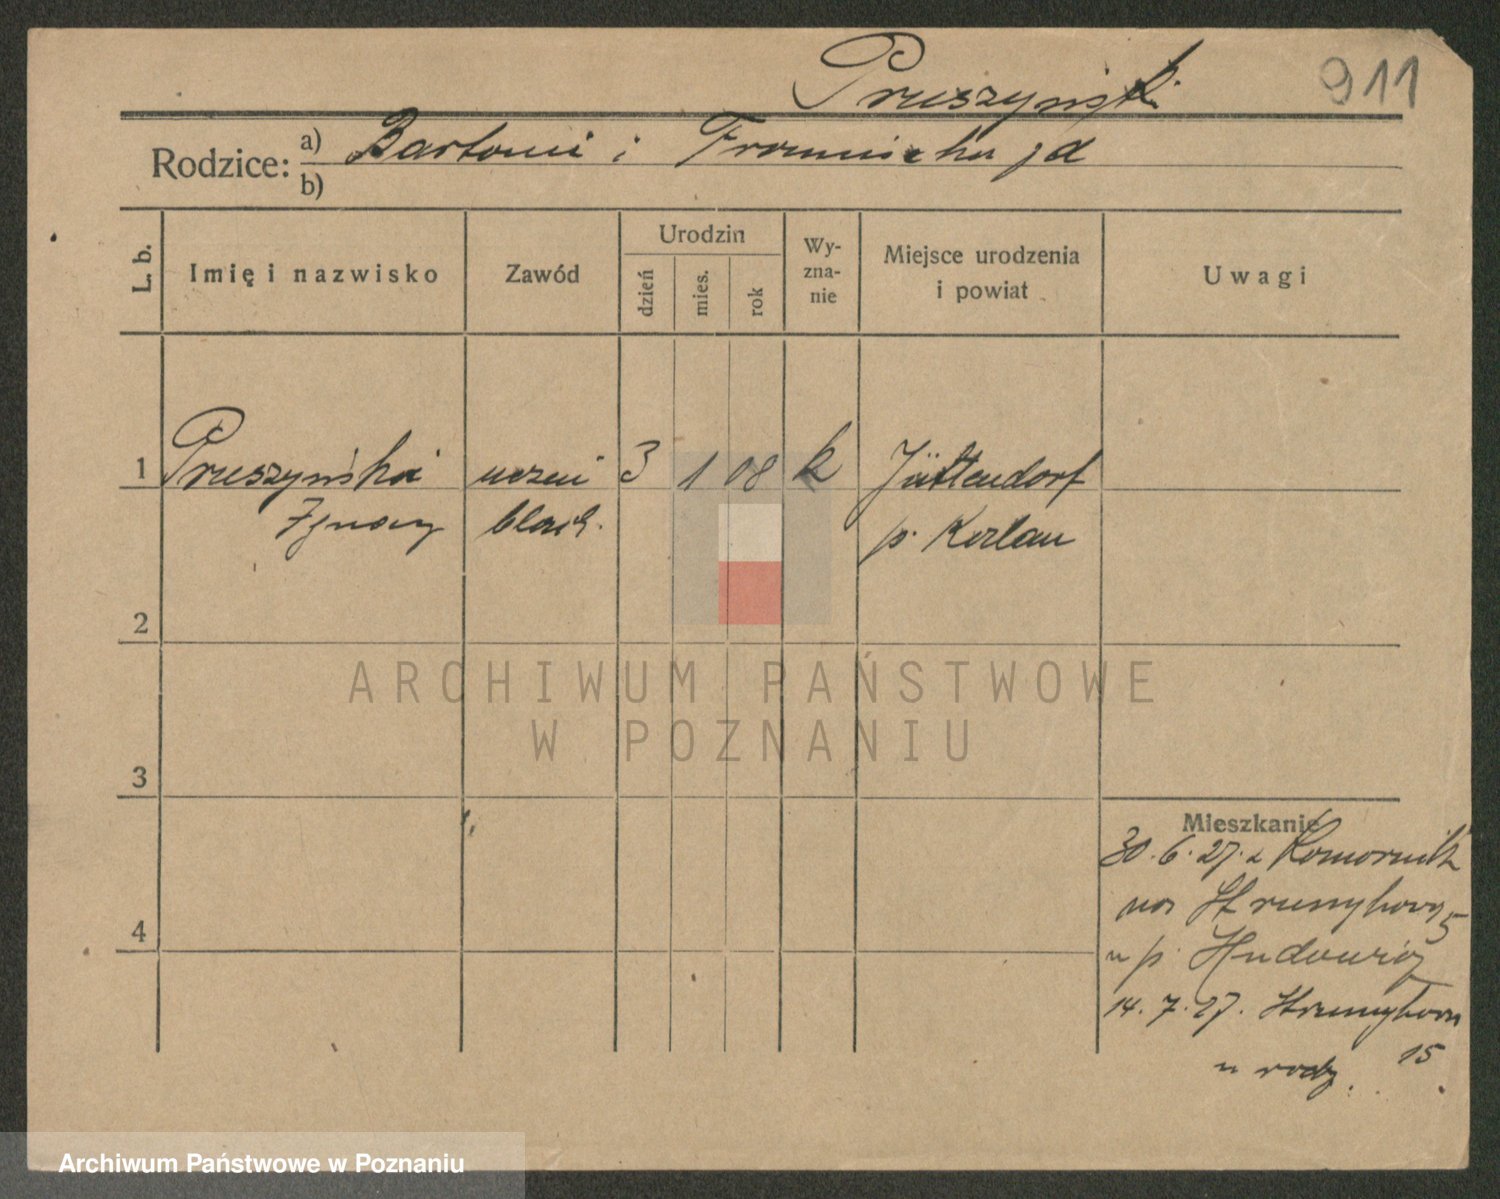 Pruszyński 911
Rodzice: a) Bartomi i Franciszka jd
b)
L. b. Imię i nazwisko Zawód Urodzin dzień mies. rok Wy-zna-nie Miejsce urodzenia i powiat Uwagi
1 Pruszyński uczni 3 1 08 k Jüttendorf
Ignacy blach. p. Kerlau
2
3
4
Mieszkanie
30.6.27. z Komornik
na Strumykowa 5
u p.
14.7.27. Strumykowa
u rodz. 15
ARCHIWUM PAŃSTWOWE
W POZNANIU
Archiwum Państwowe w Poznaniu